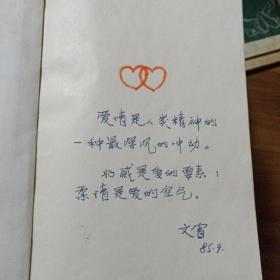 爱情是人类精神的
一种最深沉的冲动。
好感是爱的要素；
柔情是爱的空气。
文宵
85.9.